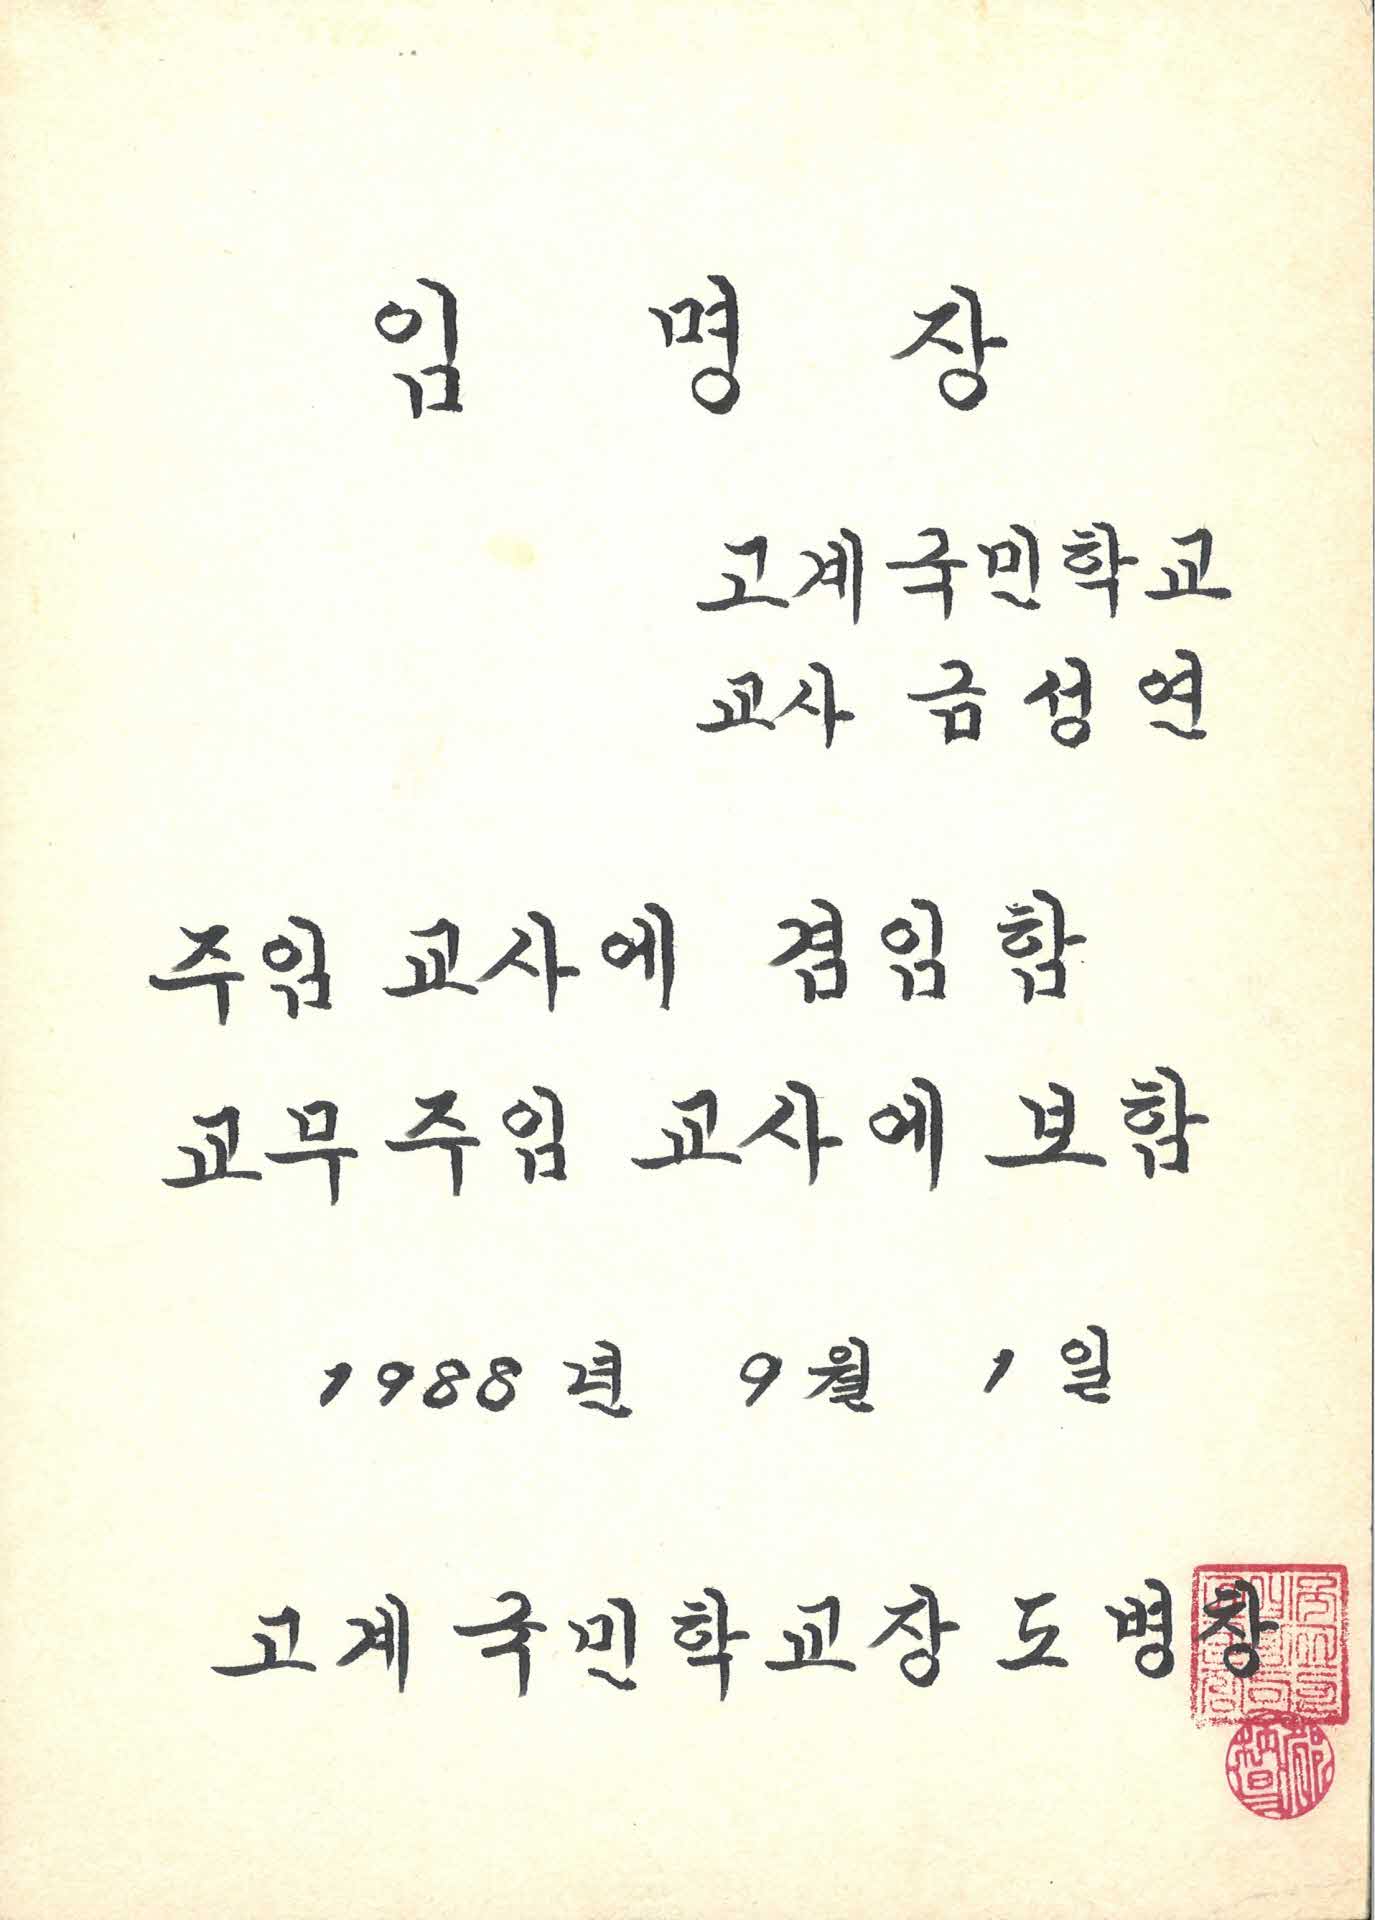 임 명 장
고계국민학교
교사 금성연
주임 교사에 겸임함
교무주임 교사에 보함
1988년 9월 1일
고계 국민학교장 도병창